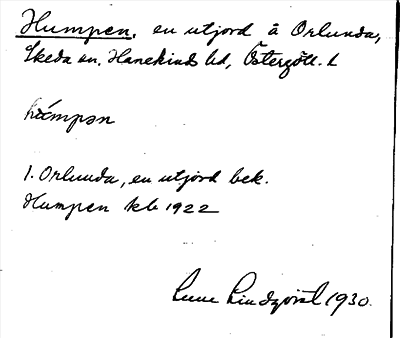 Humpen, en utjord å Orlunda,
Skeda sn, Hanekinds hd, Östergötl. l
1. Orlunda, en utjord bek.
Humpen kb 1922
Sune Lindqvist 1930.